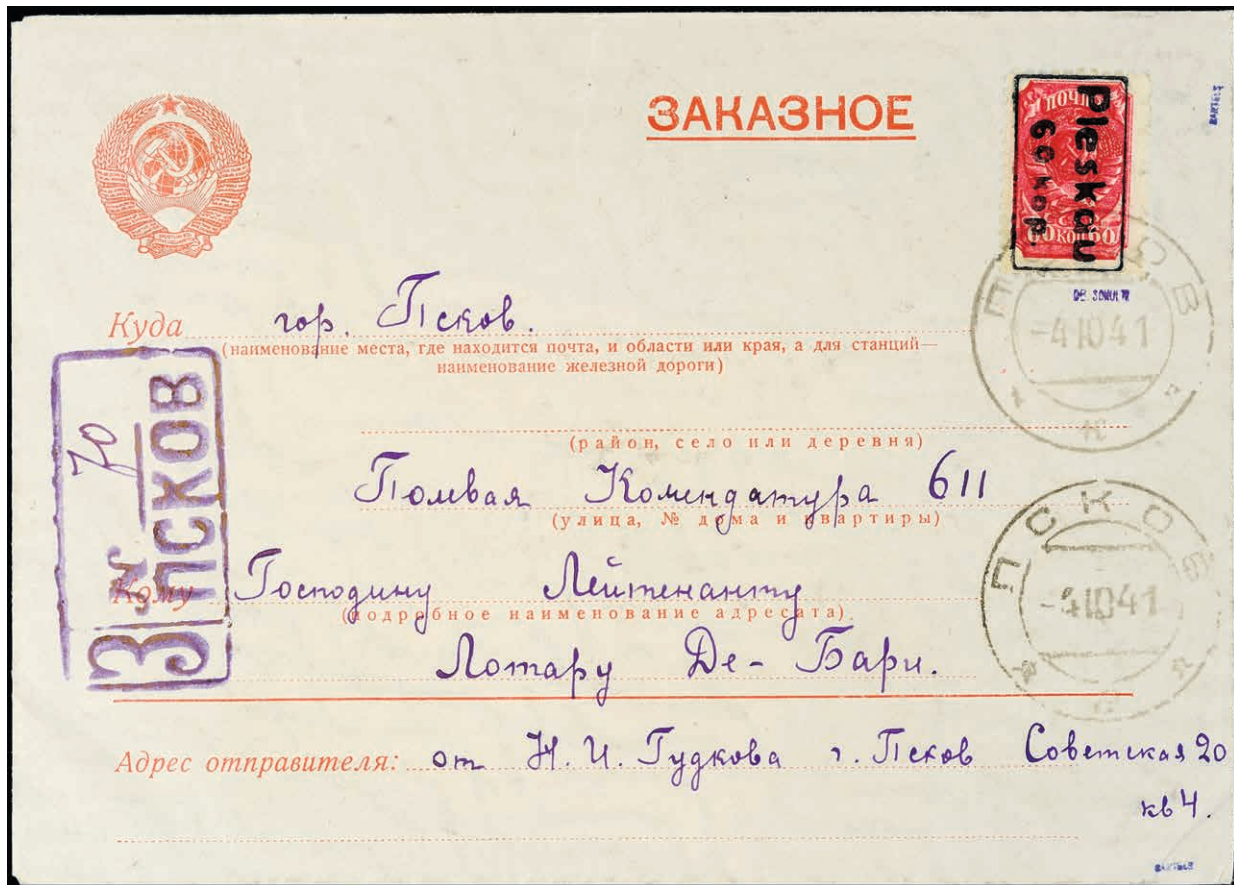 ЗАКАЗНОЕ
ПОЧТА
60 КОП 60
Pleskau
60 коp.
BARTELS
DR. SCHULTZ
Куда гор. Псков.
(наименование места, где находится почта, и области или края, а для станций—
наименование железной дороги)
ПСКОВ
-4 10 41
(район, село или деревня)
Полевая Комендатура 611
(улица, № дома и квартиры)
З № 70
ПСКОВ
Кому Господину Лейтенанту
(подробное наименование адресата)
Лотару Де-Бари.
ПСКОВ
-4 10 41
Адрес отправителя: от Н. И. Гудкова г. Псков Советская 20
кв 4.
BARTELS